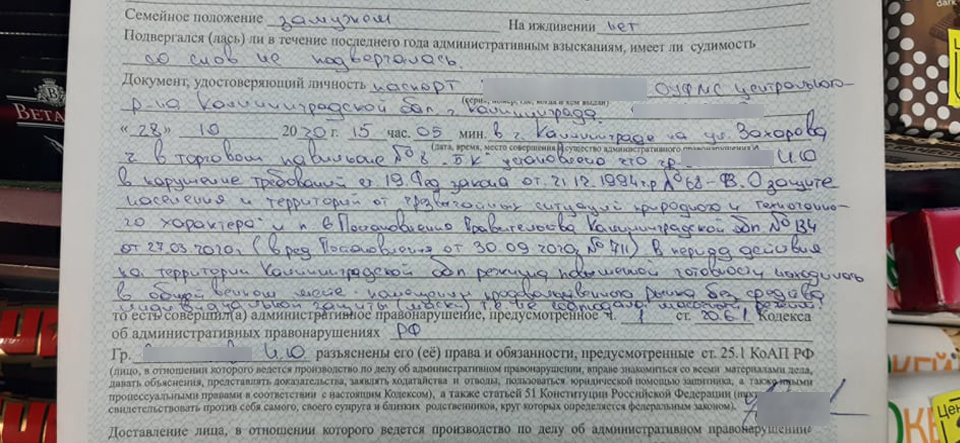 Семейное положение замужем На иждивении нет
Подвергался (лась) ли в течение последнего года административным взысканиям, имеет ли судимость
со слов не подвергалась.
Документ, удостоверяющий личность паспорт ОУФМС Центрального
р-на Калининградской обл. г. Калининграда.
«28» 10 2020 г. 15 час. 05 мин. в г. Калининграде на ул. Захарова
(дата, время, место совершения и существо административного правонарушения)
7 в торговом павильоне № 8 "БК" установлено что гр. И.Ю
в нарушение требований ст. 19 Фед закона от 21.12.1994 г № 68-ФЗ. О защите
населения и территорий от чрезвычайных ситуаций природного и техногенно-
го характера" и п. 8 Постановления Правительства Калининградской обл № 134
от 27.03.2020, (в ред Постановления от 30.09.2020, № 711) В период действия
на территории Калининградской обл режима повышенной готовности находилась
в общественном месте помещении продовольственного рынка без средства
индивидуальной защиты (маски)
то есть совершил(а) административное правонарушение, предусмотренное ч. 1 ст. 20.6.1 Кодекса
об административных правонарушениях РФ
Гр. И.Ю разъяснены его (её) права и обязанности, предусмотренные ст. 25.1 КоАП РФ
(лицо, в отношении которого ведется производство по делу об административном правонарушении, вправе знакомиться со всеми материалами дела,
давать объяснения, представлять доказательства, заявлять ходатайства и отводы, пользоваться юридической помощью защитника, а также иными
процессуальными правами в соответствии с настоящим Кодексом), а также статьей 51 Конституции Российской Федерации
свидетельствовать против себя самого, своего супруга и близких родственников, круг которых определяется федеральным законом).
Доставление лица, в отношении которого ведется производство по делу об административном правонарушении
ВЕТА
dark
Цен